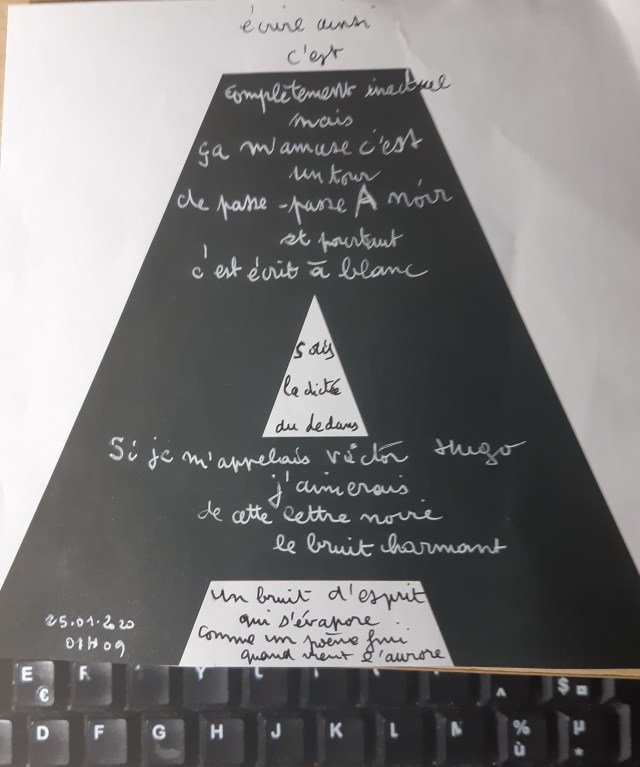 écrire ainsi
c'est
complètement inactuel
mais
ça m'amuse c'est
un tour
de passe-passe A noir
et pourtant
c'est écrit à blanc
sous
la dictée
du dedans
Si je m'appelais victor Hugo
j'aimerais
de cette lettre noire
le bruit charmant
un bruit d'esprit
qui s'évapore
comme un poème fini
quand vient l'aurore
25.01.2020
01H09
E R Y
€ ^ $ ¤
D F G H J K L M % µ
ù *